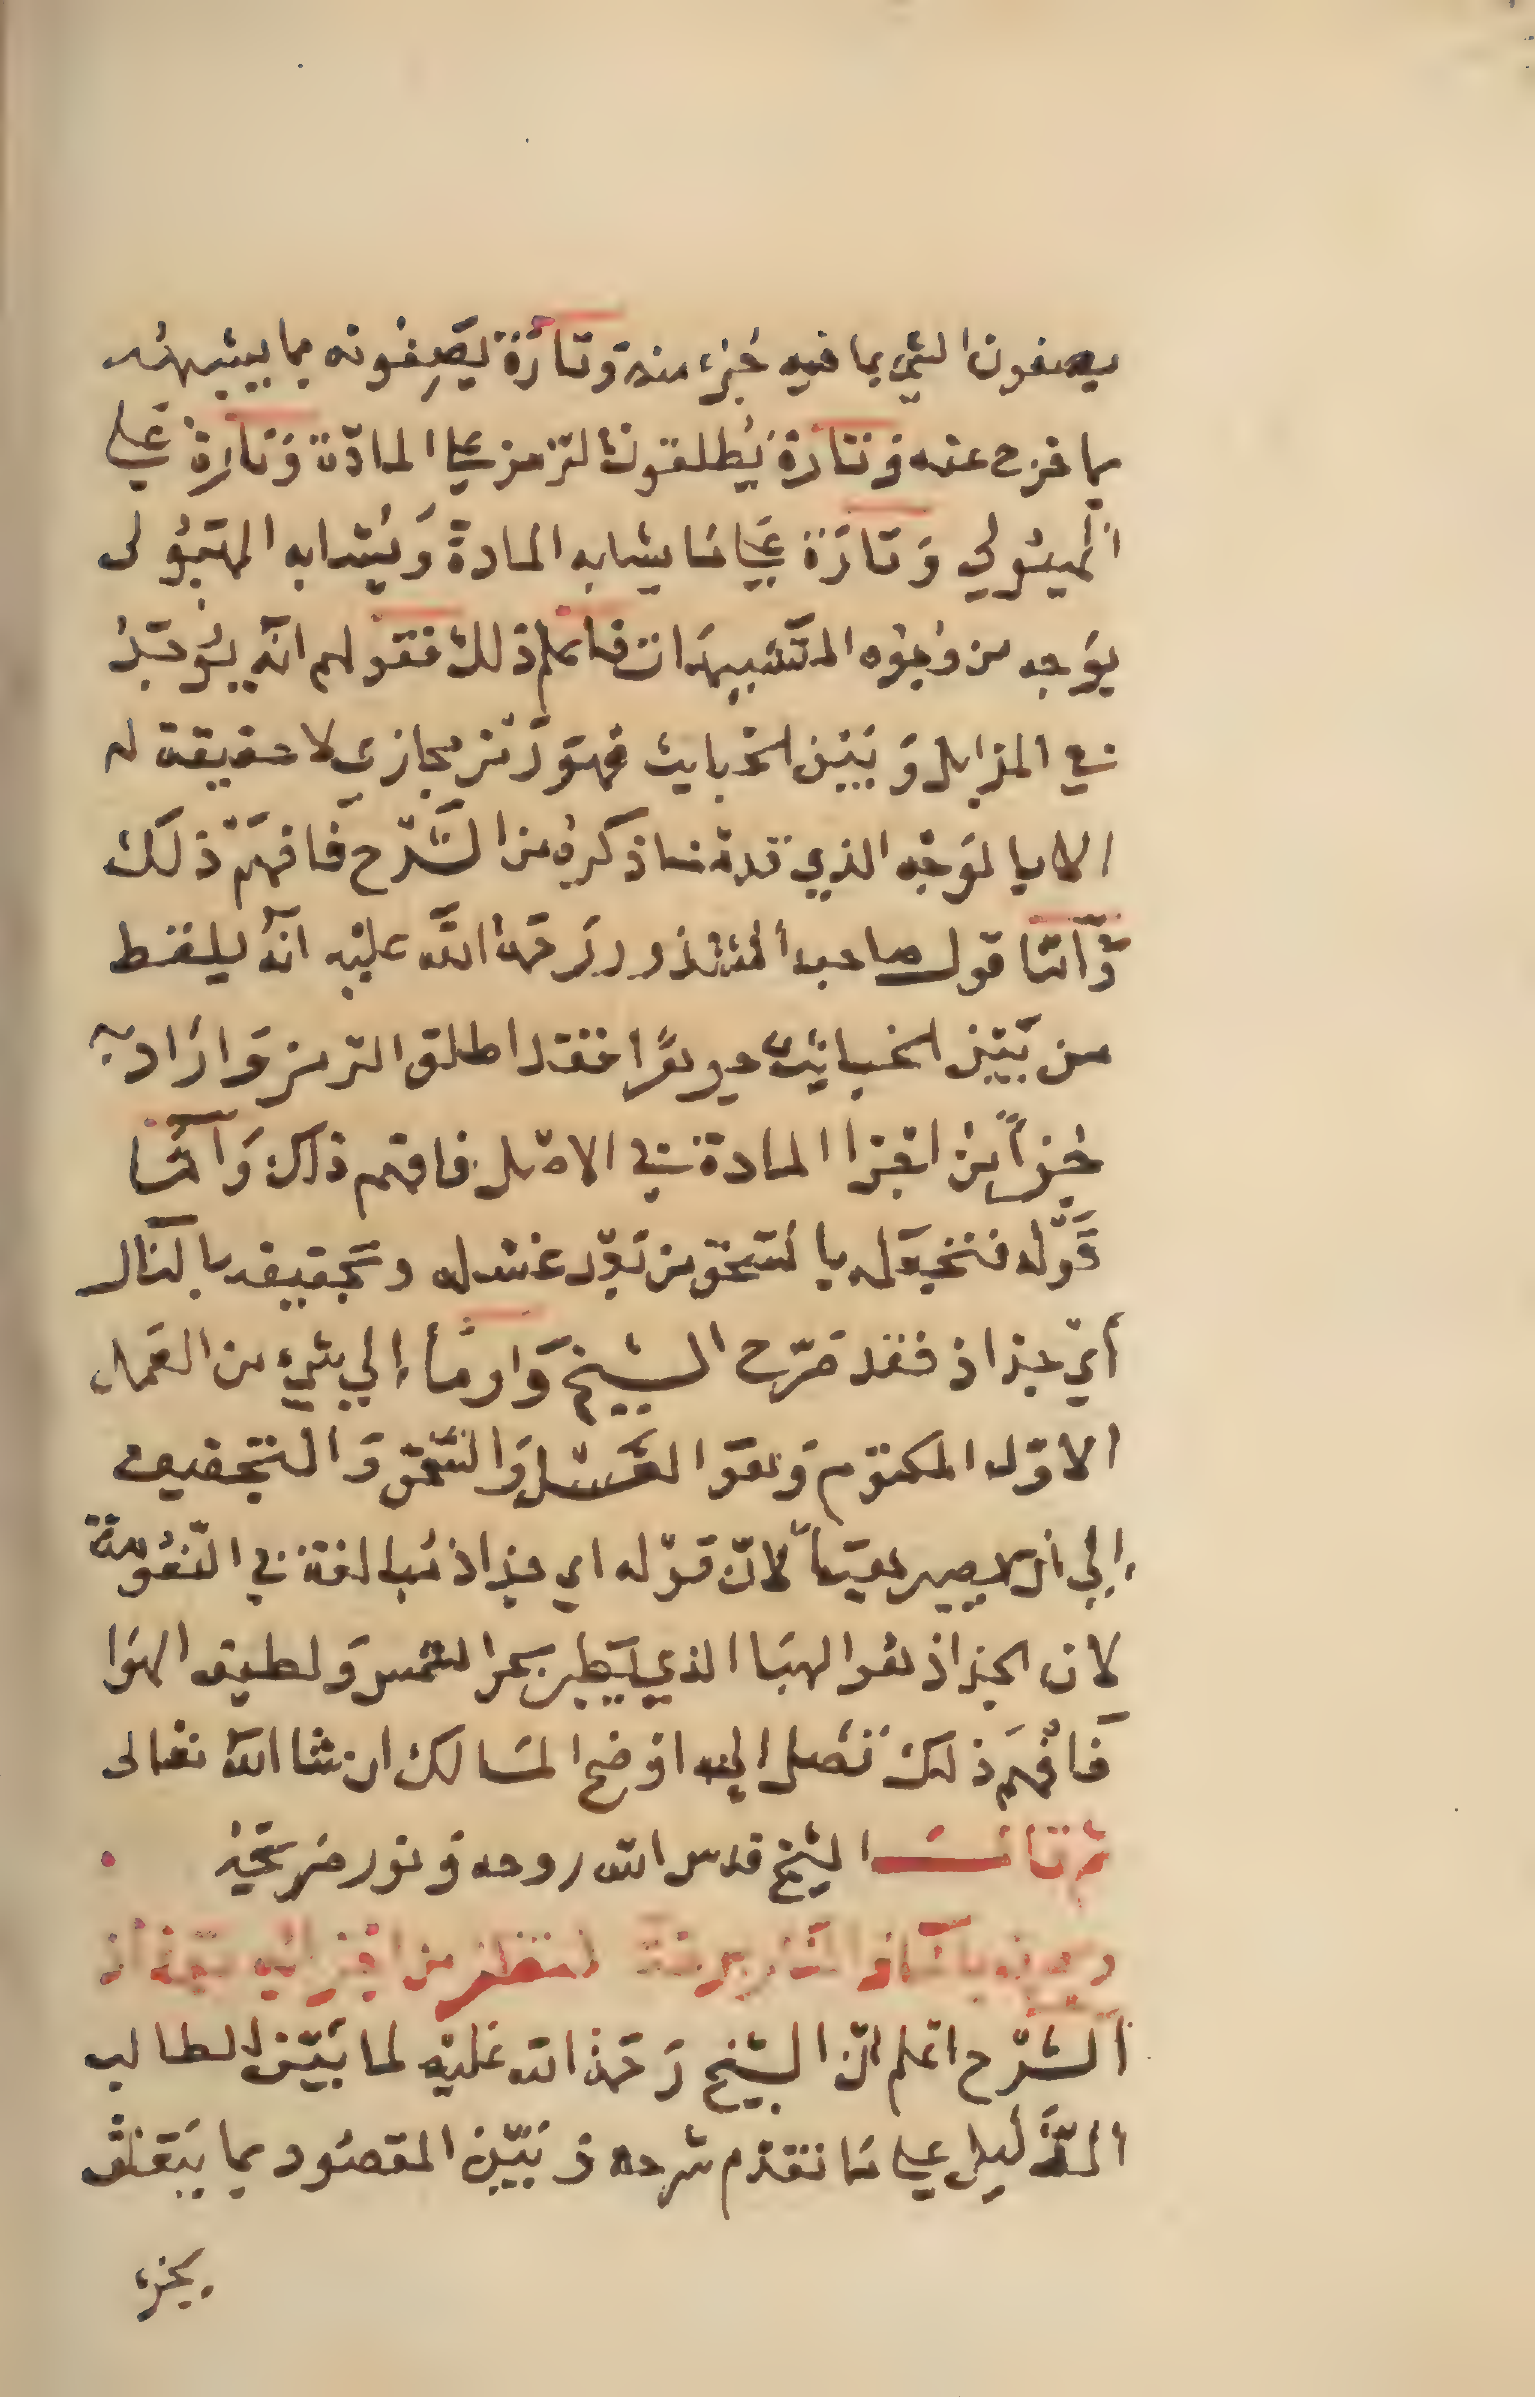 يصفون الشي بما فيه جُزء منه وَتارَة يَصِفونه بما يشبهُه
بما خرج عنه وَتارة يُطلقون الرّمز علي المادّة وَتارة عَلي
الهيُولي وَتارَة عَلي مَا يشابه المادة وَيُشابه الهيُولى
بوَجه من وُجُوه التَّشبيهَات فاعلم ذلك فقولهم انّه يُوجَدُ
في المزابل وَبَيْن الخبايث فهوَ رَمْز مجازي لا حقيقة له
الا بالوَجْه الذي قدمنا ذكرهُ من الشَّرْح فَافهَمْ ذلكَ
وَأمّا قول صاحب الشذور رَحمَة اللَّه عليْه انّهُ يلقط
من بَيْن الخبائث مويهًا فقد اطلق الرّمز وَارَاد به
جُزأً من اجْزا المادة في الاصْل فافهم ذلك وَأمّا
قَوْله فنخيَله بالسّحق من بَعْد غسْله وتجفيفه بالنار
أيّ جذاذ فقد صَرّح الشيخ وَاومأ إلي شيء من العَمل
الاوّل المكتوم وَهوَ الغَسْل وَالسَّحق وَالتجفيف
إلي أن يصير هَبَاً لانّ قوْله اي جذاذ مُبالغة في النّعُومَة
لان الجذاذ هُو الهبَا الذي يَطير بحر الشمس وَلطيف الهوَا
فَافْهَم ذلكَ تَصل إلي اوْضح المسَالك ان شا اللّه تعالى
ثم قال الشيخ قدس اللّه روحه وَنور ضَريحَهُ
الشّرْح اعْلم انّ الشيخ رَحمَة اللّه عَليْه لما بَيّن للطالب
الدَّليل علي مَا تقدّم شرحه وَبَيّن المقصُود بما يَتعَلق
بجزء